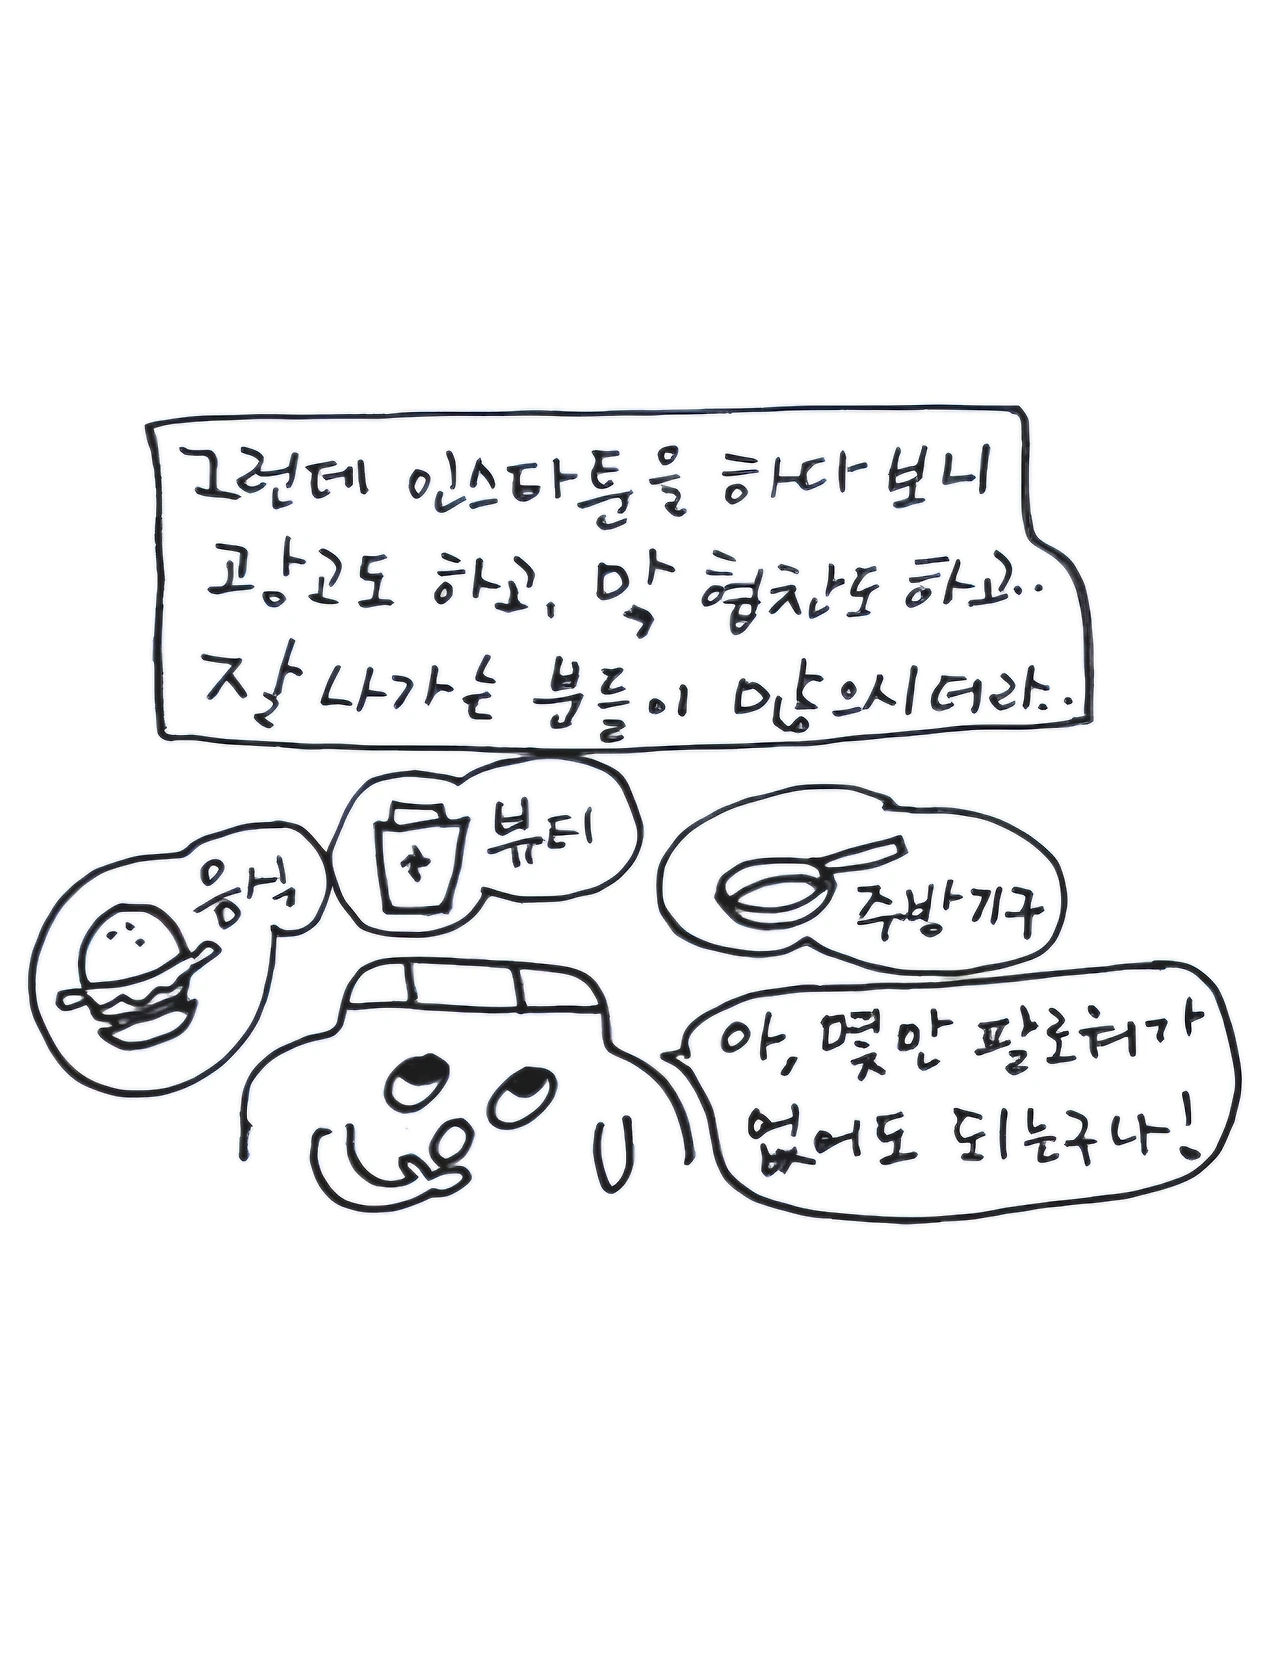 그런데 인스타툰을 하다 보니
광고도 하고, 막 협찬도 하고..
잘 나가는 분들이 많으시더라..
음식
뷰티
주방기구
아, 몇만 팔로워가
없어도 되는구나!